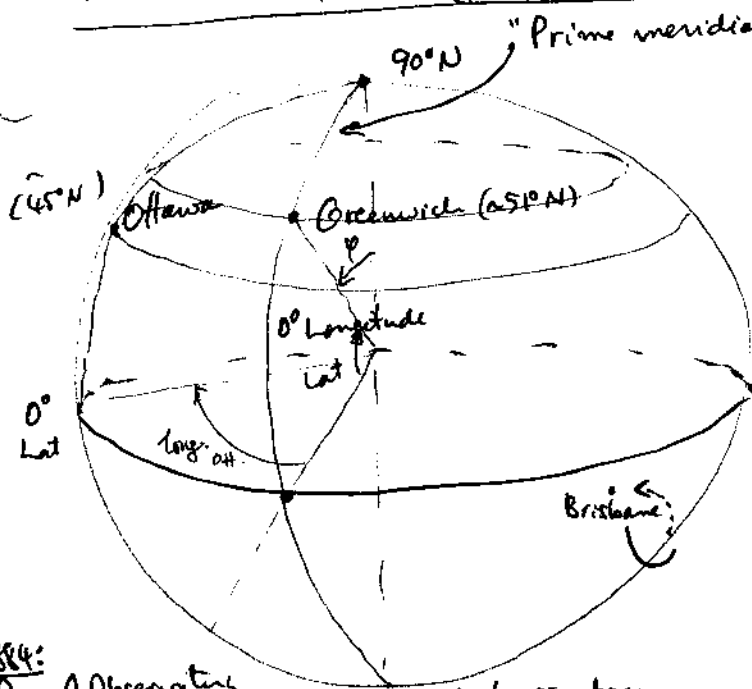 "Prime meridia
90°N
(45°N)
Ottawa
Greenwich (≈51°N)
φ
0° Longitude
Lat
0°
Lat
long. OH.
Brisbane
884:
Observatory